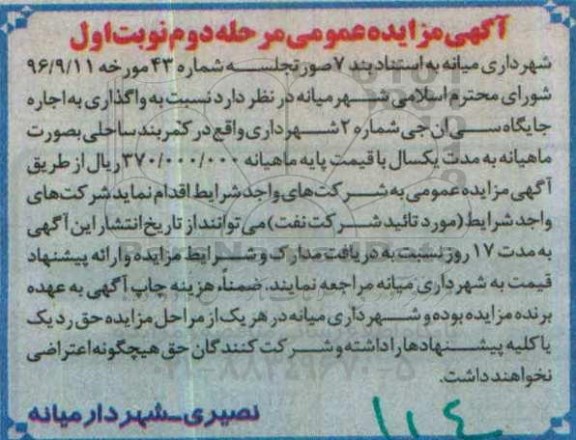 آگهی مزایده عمومی مرحله دوم نوبت اول
شهرداری میانه به استناد بند ۷ صورتجلسه شماره ۴۳ مورخه ۹۶/۹/۱۱
شورای محترم اسلامی شهر میانه در نظر دارد نسبت به واگذاری به اجاره
جایگاه سی ان جی شماره ۲ شهرداری واقع در کمربند ساحلی بصورت
ماهیانه به مدت یکسال با قیمت پایه ماهیانه ۳۷۰/۰۰۰/۰۰۰ ریال از طریق
آگهی مزایده عمومی به شرکت‌های واجد شرایط اقدام نماید شرکت‌های
واجد شرایط (مورد تائید شرکت نفت) می توانند از تاریخ انتشار این آگهی
به مدت ۱۷ روز نسبت به دریافت مدارک و شرایط مزایده و ارائه پیشنهاد
قیمت به شهرداری میانه مراجعه نمایند. ضمناً، هزینه چاپ آگهی به عهده
برنده مزایده بوده و شهرداری میانه در هر یک از مراحل مزایده حق رد یک
یا کلیه پیشنهادها را داشته و شرکت کنندگان حق هیچگونه اعتراضی
نخواهند داشت.
نصیری_شهردار میانه
۱۱٤